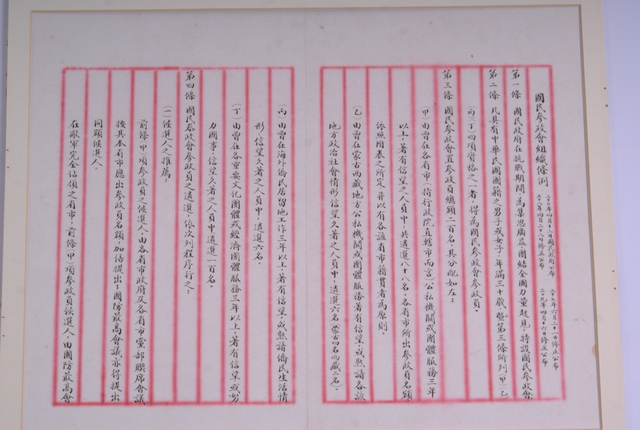 國民參政會組織條例
二十七年四月十二日國民政府公布
二十七年六月二十一日修正公布
二十八年四月二十八日修正公布
二十九年四月十六日修正公布
第一條 國民政府在抗戰期間，為集思廣益，團結全國力量起見，特設國民參政會。
第二條 凡具有中華民國國籍之男子或女子，年滿三十歲，暨第三條所列（甲）（乙）
（丙）（丁）四項資格之一者，得為國民參政會參政員。
第三條 國民參政會置參政員總額二百名，其分配如左：
（甲）由曾在各省市（指行政院直轄市而言）公私機關或團體服務三年
以上，著有信望之人員中，共遴選八十八名，各省市所出參政員名額
依照附表之所定，并以有各該省市籍貫者為原則。
（乙）由曾在蒙古西藏地方公私機關或團體服務，著有信望，或熟諳各該
地方政治社會情形，信望久著之人員中，遴選六名（蒙古四名西藏二名）。
（丙）由曾在海外僑民居留地工作三年以上，著有信望，或熟諳僑民生活情
形，信望久著之人員中，遴選六名。
（丁）由曾在各重要文化團體或經濟團體服務三年以上，著有信望，或努
力國事，信望久著之人員中，遴選一百名。
第四條 國民參政會參政員之遴選，依次列程序行之：
（一）候選人之推薦：
前條（甲）項參政員之候選人，由各省市政府及各省市黨部聯席會議
按其本省市應出參政員名額，加倍提出；國防最高會議亦得提出
同額候選人。
在敵軍完全佔領之省市，前條（甲）項參政員候選人，由國防最高會